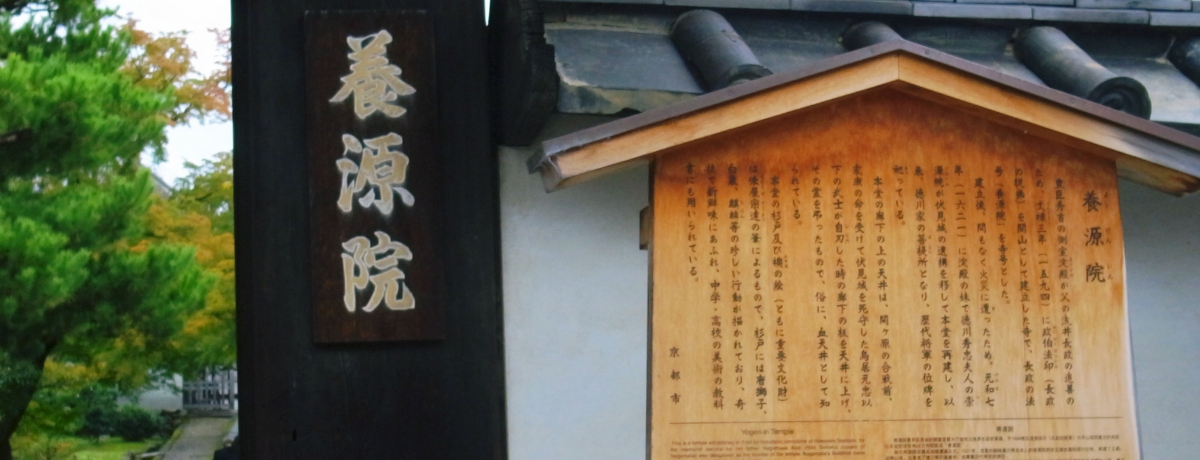 養源院
養源院
豊臣秀吉の側室淀殿が父の浅井長政の追善の
ため、文禄三年（一五九四）に政伯法印（長政
の従弟）を開山として建立した寺で、長政の法
号「養源院」を寺号とした。
建立後、間もなく火災に遭ったため、元和七
年（一六二一）に淀殿の妹で徳川秀忠夫人の崇
源院が伏見城の遺構を移して本堂を再建し、以
来、徳川家の菩提所となり、歴代将軍の位牌を
祀っている。
本堂の廊下の上の天井は、関ヶ原の合戦前、
家康の命を受けて伏見城を死守した鳥居元忠以
下の武士が自刃した時の廊下の板を天井に上げ、
その霊を弔ったもので、俗に、血天井として知
られている。
本堂の杉戸及び襖の絵（ともに重要文化財）
は俵屋宗達の筆によるもので、杉戸には唐獅子、
白象、麒麟等の珍しい行動が描かれており、奇
抜で新鮮味にあふれ、中学・高校の美術の教科
書にも用いられている。
京都市
Yogen-in Temple
養源院